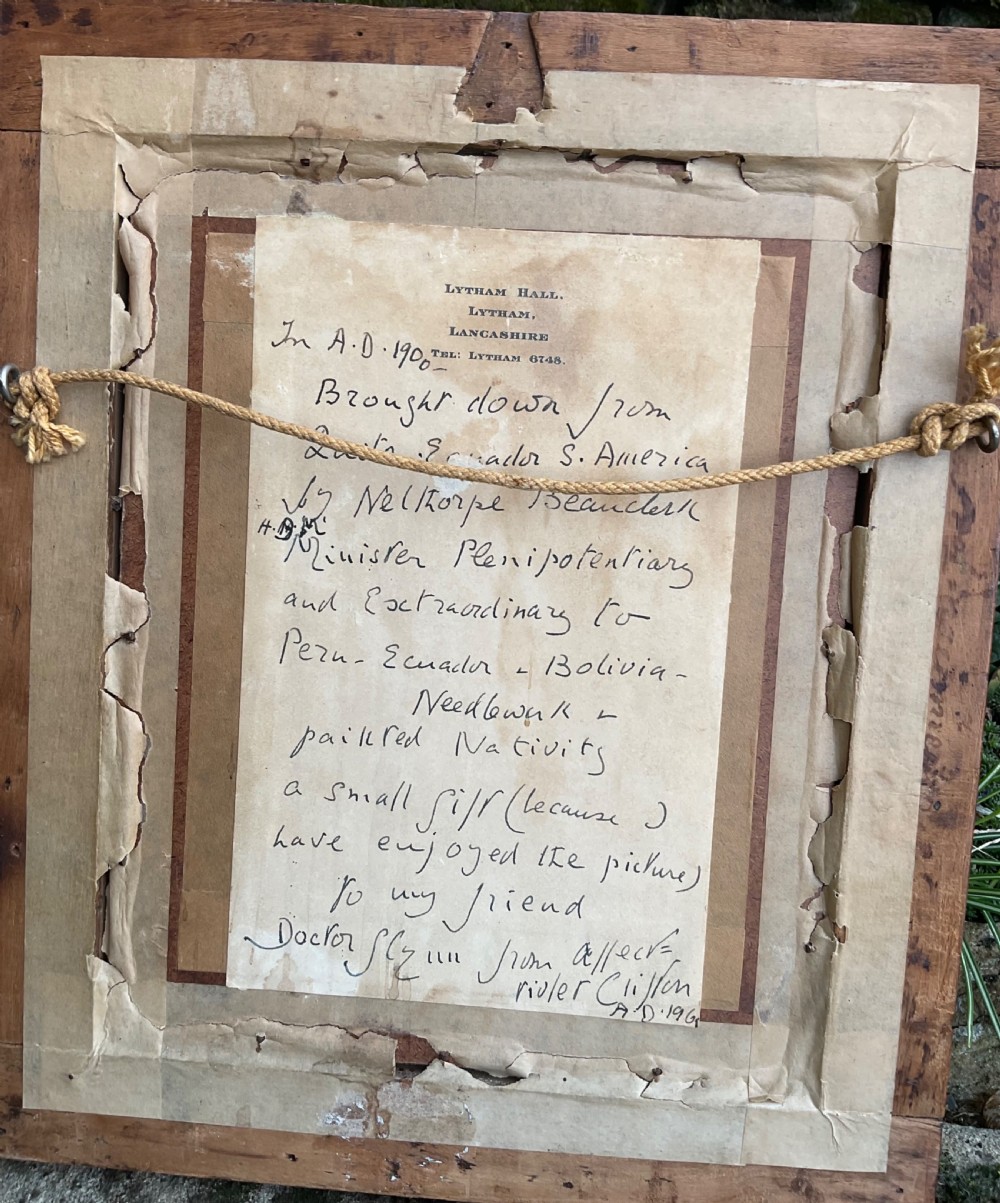 LYTHAM HALL,
LYTHAM,
LANCASHIRE
TEL: LYTHAM 6748.
In A.D. 1900-
Brought down from
Quito. Ecuador S. America
by Nelthorpe Beauclerk
H.B.M.
Minister Plenipotentiary
and Extraordinary to
Peru - Ecuador - Bolivia -
Needlework -
painted Nativity
a small gift (because I
have enjoyed the picture)
to my friend
Doctor from affect=
Violet Clifton
A.D. 196